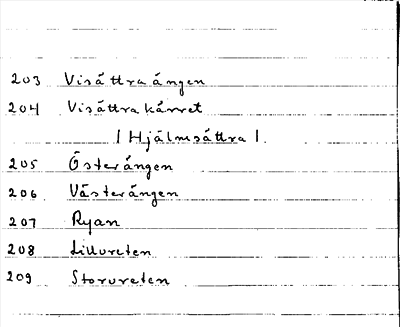 203 Visättraängen
204 Visättrakärret
| Hjälmsättra |.
205 Österängen
206 Västerängen
207 Ryan
208 Lillvreten
209 Storvreten